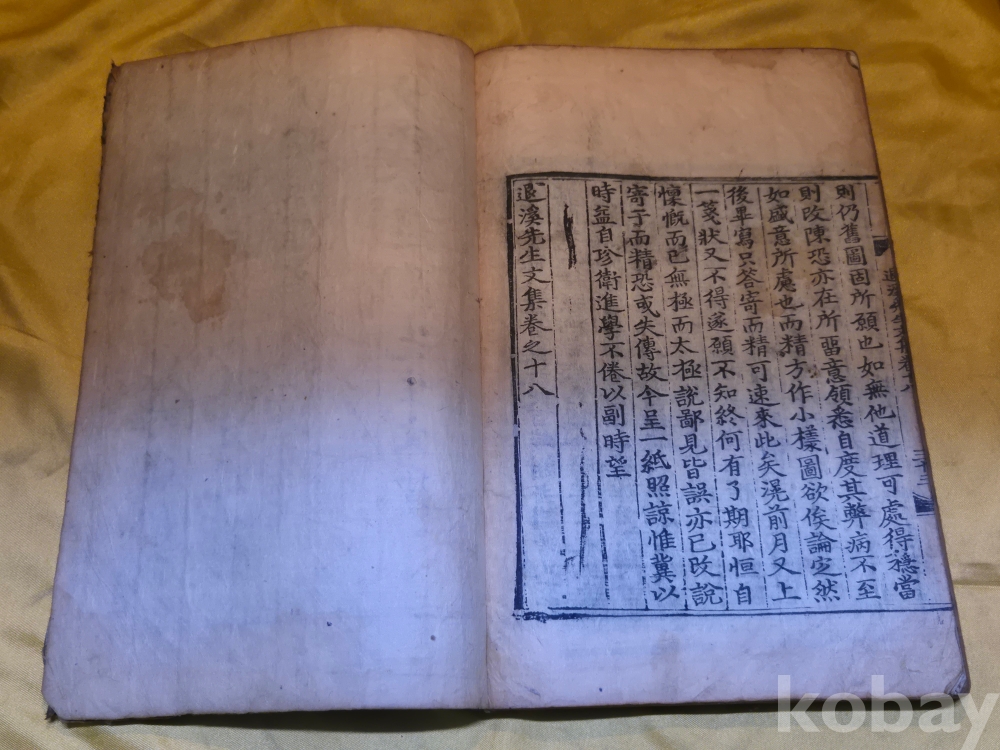 則仍舊圖固所願也如無他道理可處得穩當
則改陳恐亦在所習意領悉自度其弊病不至
如盛意所慮也而精方作小樣圖欲俟論定然
後畢寫只答寄而精可速來此矣滉前月又上
一箋狀又不得遂願不知終何有了期耶恒自
懷慨而已無極而太極說鄙見皆誤亦已改說
寄于而精恐或失傳故今呈一紙照諒惟冀以
時益自珍衛進學不倦以副時望
退溪先生文集卷之十八
kobay